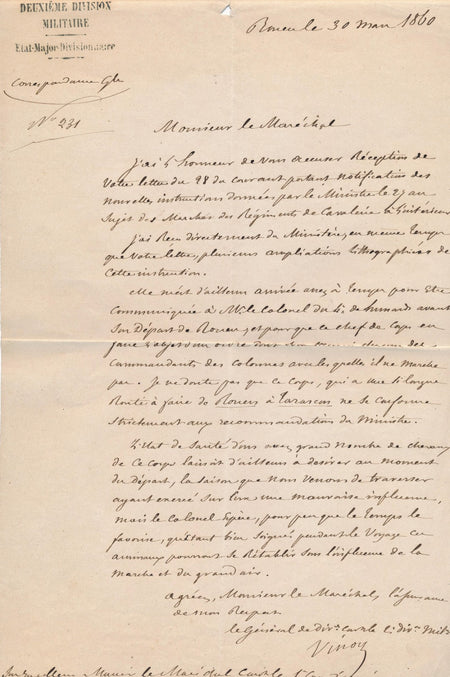 DEUXIÈME DIVISION
MILITAIRE
Etat-Major-Divisionnaire
Correspondance Gle
No 231
Rouen le 30 mars 1860
Monsieur le Maréchal
J'ai l'honneur de vous accuser Réception de
votre lettre du 28 du courant portant notification des
nouvelles instructions données par le Ministre le 27 au
sujet des Marches des Régiments de Cavalerie à l'intérieur
J'ai Reçu directement du Ministère, en même temps
que votre lettre, plusieurs ampliations lithographiées de
cette instruction.
Elle m'est d'ailleurs arrivée assez à temps pour être
Communiquée à Mr le Colonel du 4e de hussards avant
son Départ de Rouen, et pour que ce chef de Corps en
fasse l'objet d'un ordre dont
des
Commandants des Colonnes avec lesquelles il ne marche
pas. Je ne doute pas que ce Corps, qui a une si longue
Route à faire de Rouen à Tarascon ne se conforme
strictement aux recommandations du Ministre.
L'Etat de santé d'un assez grand nombre de chevaux
de ce corps laissait d'ailleurs à désirer au moment
du Départ, la saison que nous venons de traverser
ayant exercé sur eux une mauvaise influence,
mais le Colonel Espère, pour peu que le temps le
favorise, qu'étant bien soignés pendant le Voyage ces
animaux pourront se Rétablir sous l'influence de la
marche et du grand air.
Agréez, Monsieur le Maréchal, l'assurance
de mon Respect
le Général de Divon Comt la 2e divon Mitre
Vinoy
le Maréchal